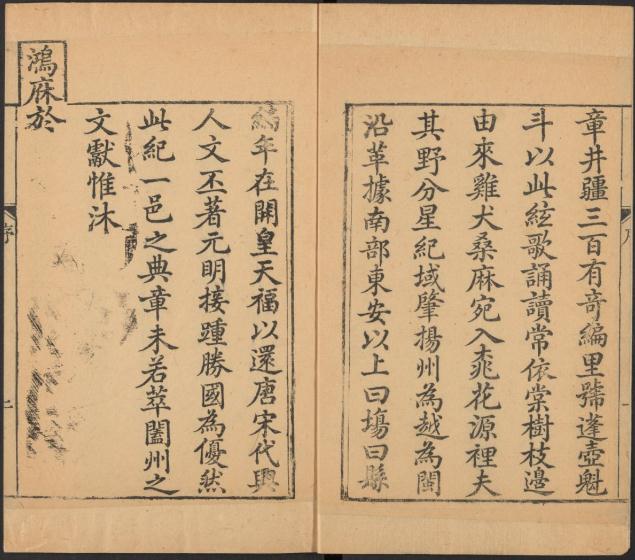 章井疆三百有奇編里號蓬壺魁
斗以此絃歌誦讀常依棠樹枝邊
由來雞犬桑麻宛入桃花源裡夫
其野分星紀域肇揚州為越為閩
沿革據南部東安以上曰塲曰縣
編年在開皇天福以還唐宋代興
人文丕著元明接踵勝國為優然
此紀一邑之典章未若萃闔州之
文獻惟沐
鴻庥於
序